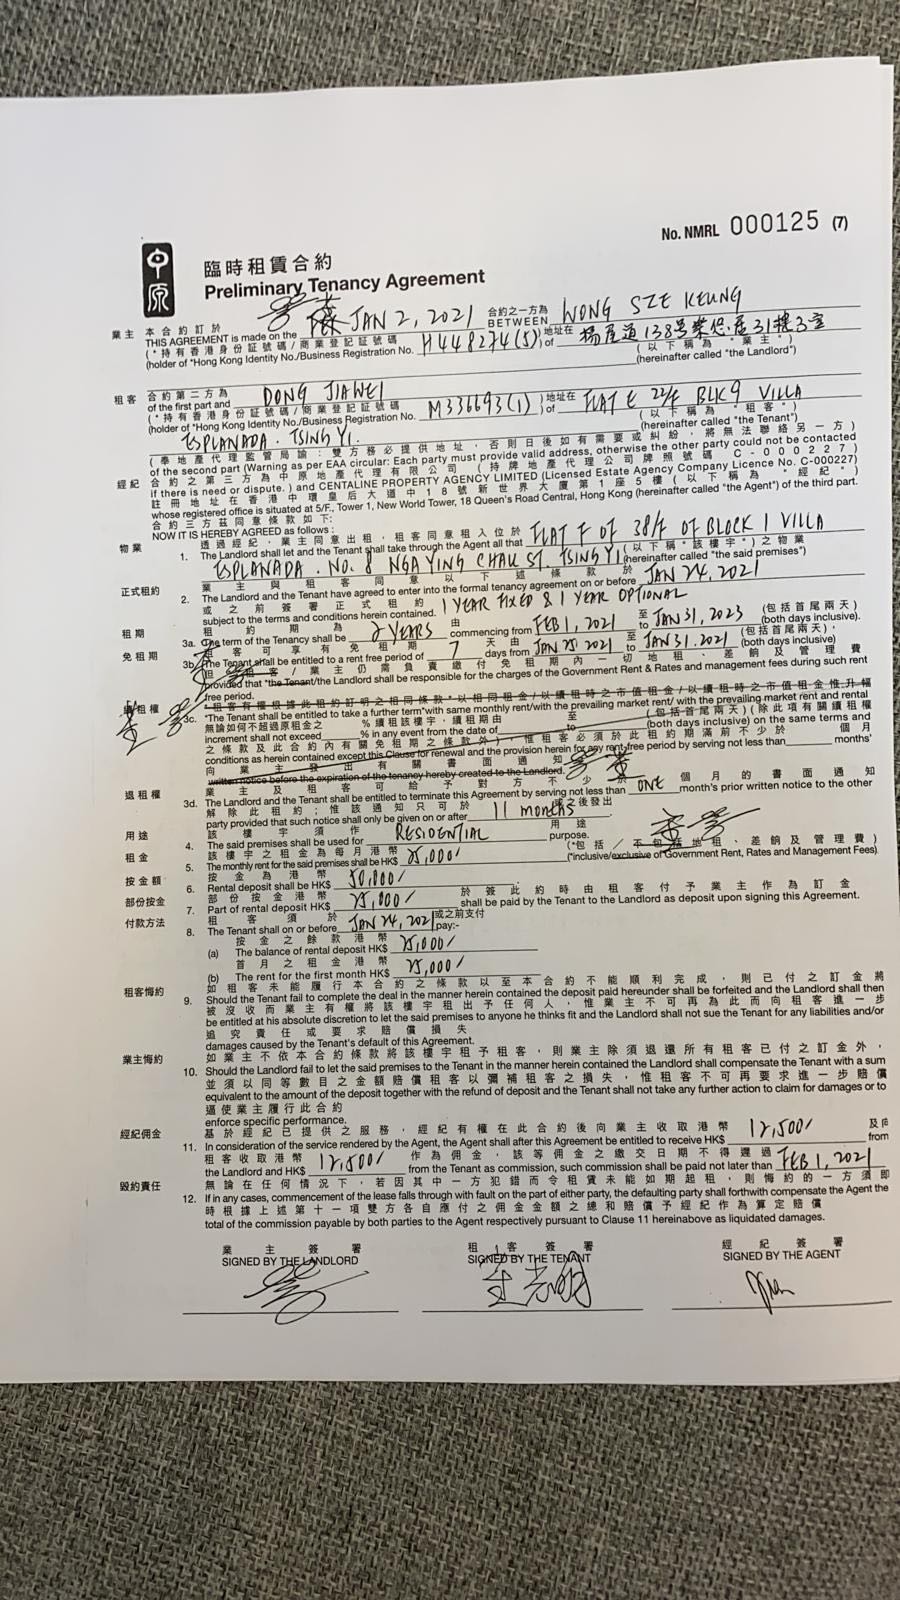 No. NMRL 000125 (7)
中原
臨時租賃合約
Preliminary Tenancy Agreement
業主 本合約訂於 合約之一方為
THIS AGREEMENT is made on the JAN 2, 2021 BETWEEN WONG SZE KEUNG
(*持有香港身份証號碼/商業登記証號碼 地址在 楊屋道138號 31樓3室 (以下稱為“業主”)
(holder of *Hong Kong Identity No./Business Registration No. H448274(5) ) of (hereinafter called "the Landlord")
租客 合約第二方為
of the first part and DONG JIAWEI
(*持有香港身份証號碼/商業登記証號碼 )地址在 (以下稱為“租客”)
(holder of *Hong Kong Identity No./Business Registration No. M336693(1) ) of FLAT E 22/F BLK 9 VILLA (hereinafter called "the Tenant")
ESPLANADA. TSING YI.
(奉地產代理監管局諭：雙方務必提供地址，否則日後如有需要或糾紛，將無法聯絡另一方)
of the second part (Warning as per EAA circular: Each party must provide valid address, otherwise the other party could not be contacted
經紀 合約之第三方為中原地產代理有限公司 (持牌地產代理公司牌照號碼 C-000227)
if there is need or dispute.) and CENTALINE PROPERTY AGENCY LIMITED (Licensed Estate Agency Company Licence No. C-000227)
註冊地址在香港中環皇后大道中18號新世界大廈第1座5樓 (以下稱為“經紀”)
whose registered office is situated at 5/F., Tower 1, New World Tower, 18 Queen's Road Central, Hong Kong (hereinafter called "the Agent") of the third part.
合約三方茲同意條款如下:
NOW IT IS HEREBY AGREED as follows :
物業 透過經紀，業主同意出租，租客同意租入位於
1. The Landlord shall let and the Tenant shall take through the Agent all that FLAT F OF 38/F OF BLOCK 1 VILLA
ESPLANADA. NO. 8 NGA YING CHAU ST. TSING YI (以下稱“該樓宇”)之物業
(hereinafter called "the said premises")
正式租約 業主與租客同意以下述條款於
2. The Landlord and the Tenant have agreed to enter into the formal tenancy agreement on or before JAN 24, 2021
或之前簽署正式租約
subject to the terms and conditions herein contained. 1 YEAR FIXED & 1 YEAR OPTIONAL
租期 租約期為 由 至 (包括首尾兩天)
3a. The term of the Tenancy shall be 2 YEARS commencing from FEB 1, 2021 to JAN 31, 2023 (both days inclusive).
免租期 租客可享有免租期 天由 至 (包括首尾兩天)，
3b. The Tenant shall be entitled to a rent free period of 7 days from JAN 25, 2021 to JAN 31. 2021 (both days inclusive)
但*租客/業主仍需負責繳付免租期內一切地租、差餉及管理費
provided that *the Tenant/the Landlord shall be responsible for the charges of the Government Rent & Rates and management fees during such rent
free period.
續租權 *租客有權根據此租約訂明之相同條款*以相同租金/以續租時之市值租金/以續租時之市值租金惟升幅
3c. *The Tenant shall be entitled to take a further term*with same monthly rent/with the prevailing market rent/ with the prevailing market rent and rental
無論如何不超過原租金之 %續租該樓宇，續租期由 至 (包括首尾兩天)(除此項有關續租權
increment shall not exceed % in any event from the date of to (both days inclusive) on the same terms and
之條款及此合約內有關免租期之條款外)，惟租客必須於此租約期滿前不少於 個月
conditions as herein contained except this Clause for renewal and the provision herein for any rent-free period by serving not less than months'
向業主發出有關書面通知
written notice before the expiration of the tenancy hereby created to the Landlord.
退租權 業主及租客可給予對方不少於 個月的書面通知
3d. The Landlord and the Tenant shall be entitled to terminate this Agreement by serving not less than ONE month's prior written notice to the other
解除此租約；惟該通知只可於 之後發出
party provided that such notice shall only be given on or after 11 months
用途 該樓宇須作 用途
4. The said premises shall be used for RESIDENTIAL purpose.
租金 該樓宇之租金為每月港幣 (*包括/不包括地租、差餉及管理費)
5. The monthly rent for the said premises shall be HK$ 25,000/ (*inclusive/exclusive of Government Rent, Rates and Management Fees).
按金額 按金為港幣
6. Rental deposit shall be HK$ 50,000/
部份按金 部份按金港幣 於簽此約時由租客付予業主作為訂金
7. Part of rental deposit HK$ 25,000/ shall be paid by the Tenant to the Landlord as deposit upon signing this Agreement.
付款方法 租客須於 或之前支付
8. The Tenant shall on or before JAN 24, 2021 pay:-
按金之餘款港幣
(a) The balance of rental deposit HK$ 25,000/
首月之租金港幣
(b) The rent for the first month HK$ 25,000/
租客悔約 如租客未能履行本合約之條款以至本合約不能順利完成，則已付之訂金將
9. Should the Tenant fail to complete the deal in the manner herein contained the deposit paid hereunder shall be forfeited and the Landlord shall then
被沒收而業主有權將該樓宇租出予任何人，惟業主不可再為此而向租客進一步
be entitled at his absolute discretion to let the said premises to anyone he thinks fit and the Landlord shall not sue the Tenant for any liabilities and/or
追究責任或要求賠償損失
damages caused by the Tenant's default of this Agreement.
業主悔約 如業主不依本合約條款將該樓宇租予租客，則業主除須退還所有租客已付之訂金外，
10. Should the Landlord fail to let the said premises to the Tenant in the manner herein contained the Landlord shall compensate the Tenant with a sum
並須以同等數目之金額賠償租客以彌補租客之損失，惟租客不可再要求進一步賠償
equivalent to the amount of the deposit together with the refund of deposit and the Tenant shall not take any further action to claim for damages or to
逼使業主履行此合約
enforce specific performance.
經紀佣金 基於經紀已提供之服務，經紀有權在此合約後向業主收取港幣 及向
11. In consideration of the service rendered by the Agent, the Agent shall after this Agreement be entitled to receive HK$ 12,500/ from
租客收取港幣 作為佣金，該等佣金之繳交日期不得遲過
the Landlord and HK$ 12,500/ from the Tenant as commission, such commission shall be paid not later than FEB 1, 2021
毀約責任 無論在任何情況下，若因其中一方犯錯而令租賃未能如期起租，則悔約的一方須即
12. If in any cases, commencement of the lease falls through with fault on the part of either party, the defaulting party shall forthwith compensate the Agent the
時根據上述第十一項雙方各自應付之佣金金額之總和賠償予經紀作為算定賠償
total of the commission payable by both parties to the Agent respectively pursuant to Clause 11 hereinabove as liquidated damages.
業主簽署 租客簽署 經紀簽署
SIGNED BY THE LANDLORD SIGNED BY THE TENANT SIGNED BY THE AGENT